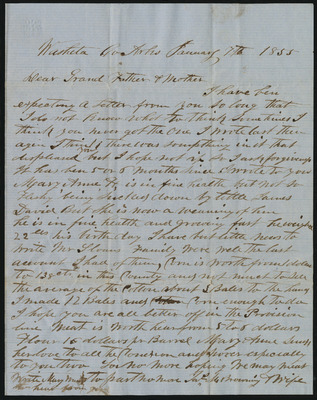 Wichita Co Arks January 7th 1855
Dear Grand Father & Mother
I have bin
expecating a letter from you so long that
I do not know what to think Sometimes I
think you never got the one I wrote last then
agin I think there was something in it that
displeased but I hope not if so I ask forgiveness
It has ben 5 or 6 months since I wrote to you
Mary Anne is in fine health but not so
fleshy being sucked down by little James
David but she is now a weaning of him
he is in fine health and growing fast he weighs
22 lbs his birth day I have but little news to
write Mr Sloans Family were well the last
account I had of them Corn is worth from 1 dollar
to 1.35 cts in this County and not much to sell
the average of the cotton about 3 Bales to the hand
I made 12 Bales and Corn enough to do
I hope you are all better off in the Provision
line Meat is worth hear from 5 to 8 dollars
Flour 16 dollars pr Barrel Mary Anne sends
her love to all the Connexion and more especially
to you two You no more hoping we may meet
to part no more
Mary Ann wants to hear from you
& Wife